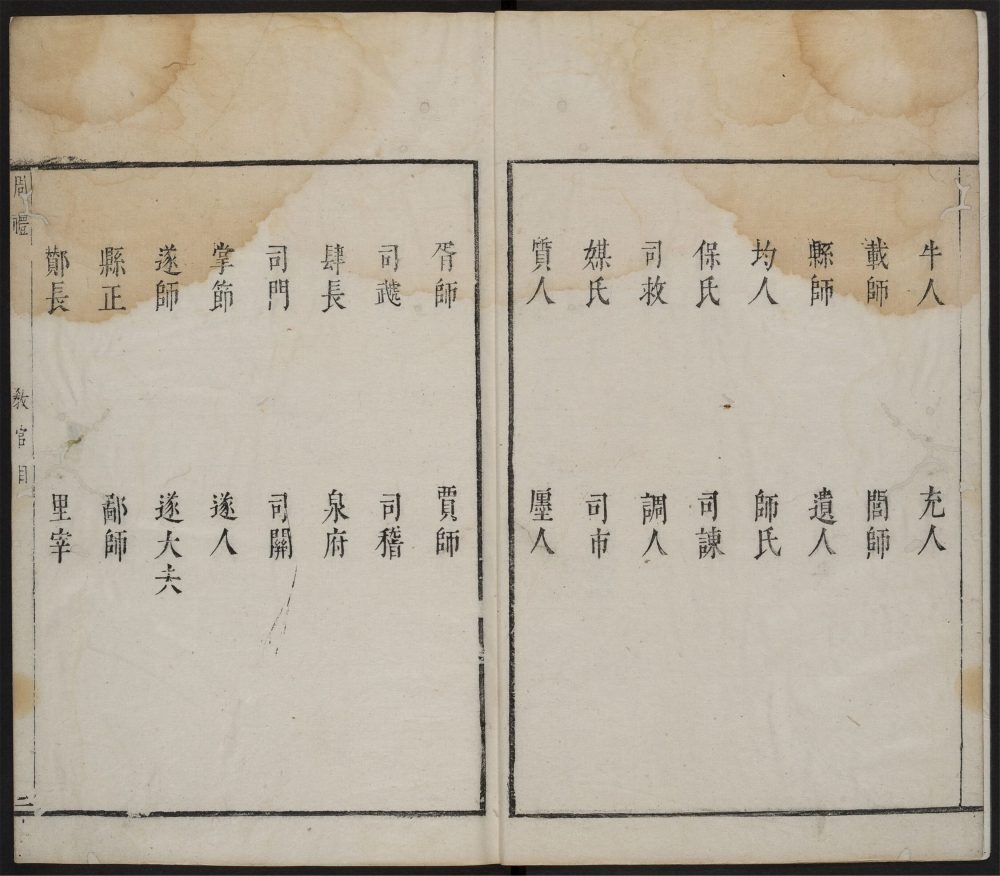 牛人 充人
載師 閭師
縣師 遺人
均人 師氏
保氏 司諫
司救 調人
媒氏 司市
質人 廛人
胥師 賈師
司虣 司稽
肆長 泉府
司門 司關
掌節 遂人
遂師 遂大夫
縣正 鄙師
酇長 里宰
周禮 教官目 二